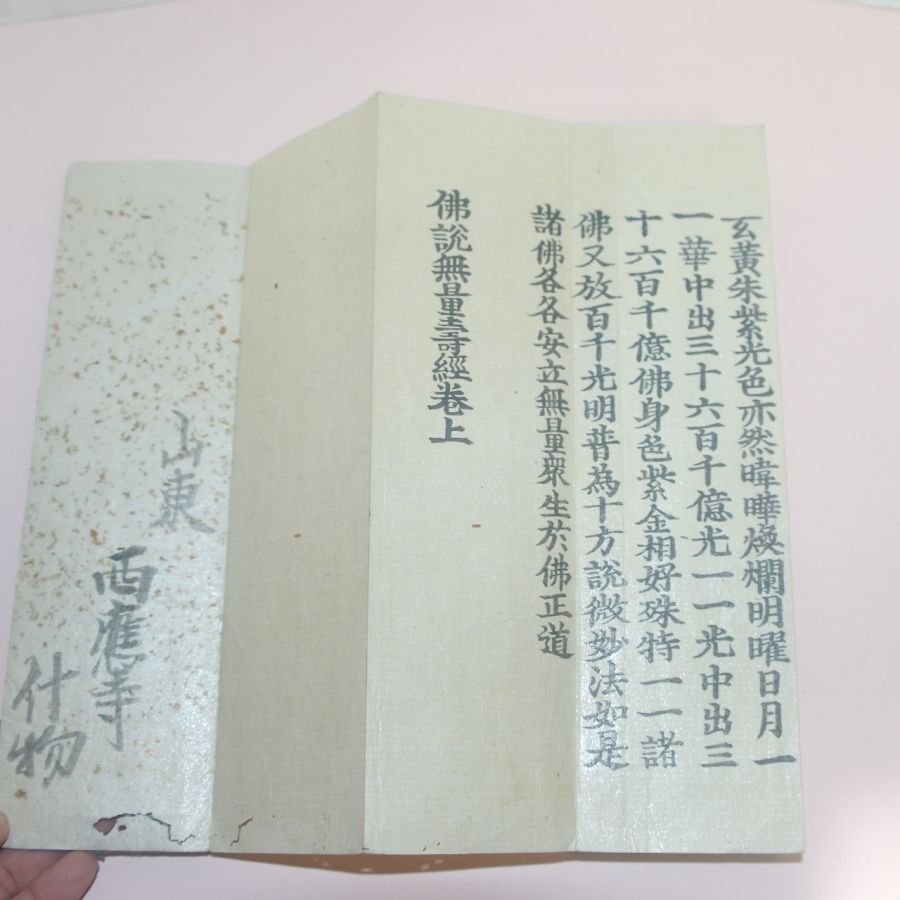 玄黃朱紫光色亦然暐曄煥爛明曜日月一
一華中出三十六百千億光一一光中出三
十六百千億佛身色紫金相好殊特一一諸
佛又放百千光明普為十方說微妙法如是
諸佛各各安立無量衆生於佛正道
佛說無量壽經卷上
山東
西應寺
什物